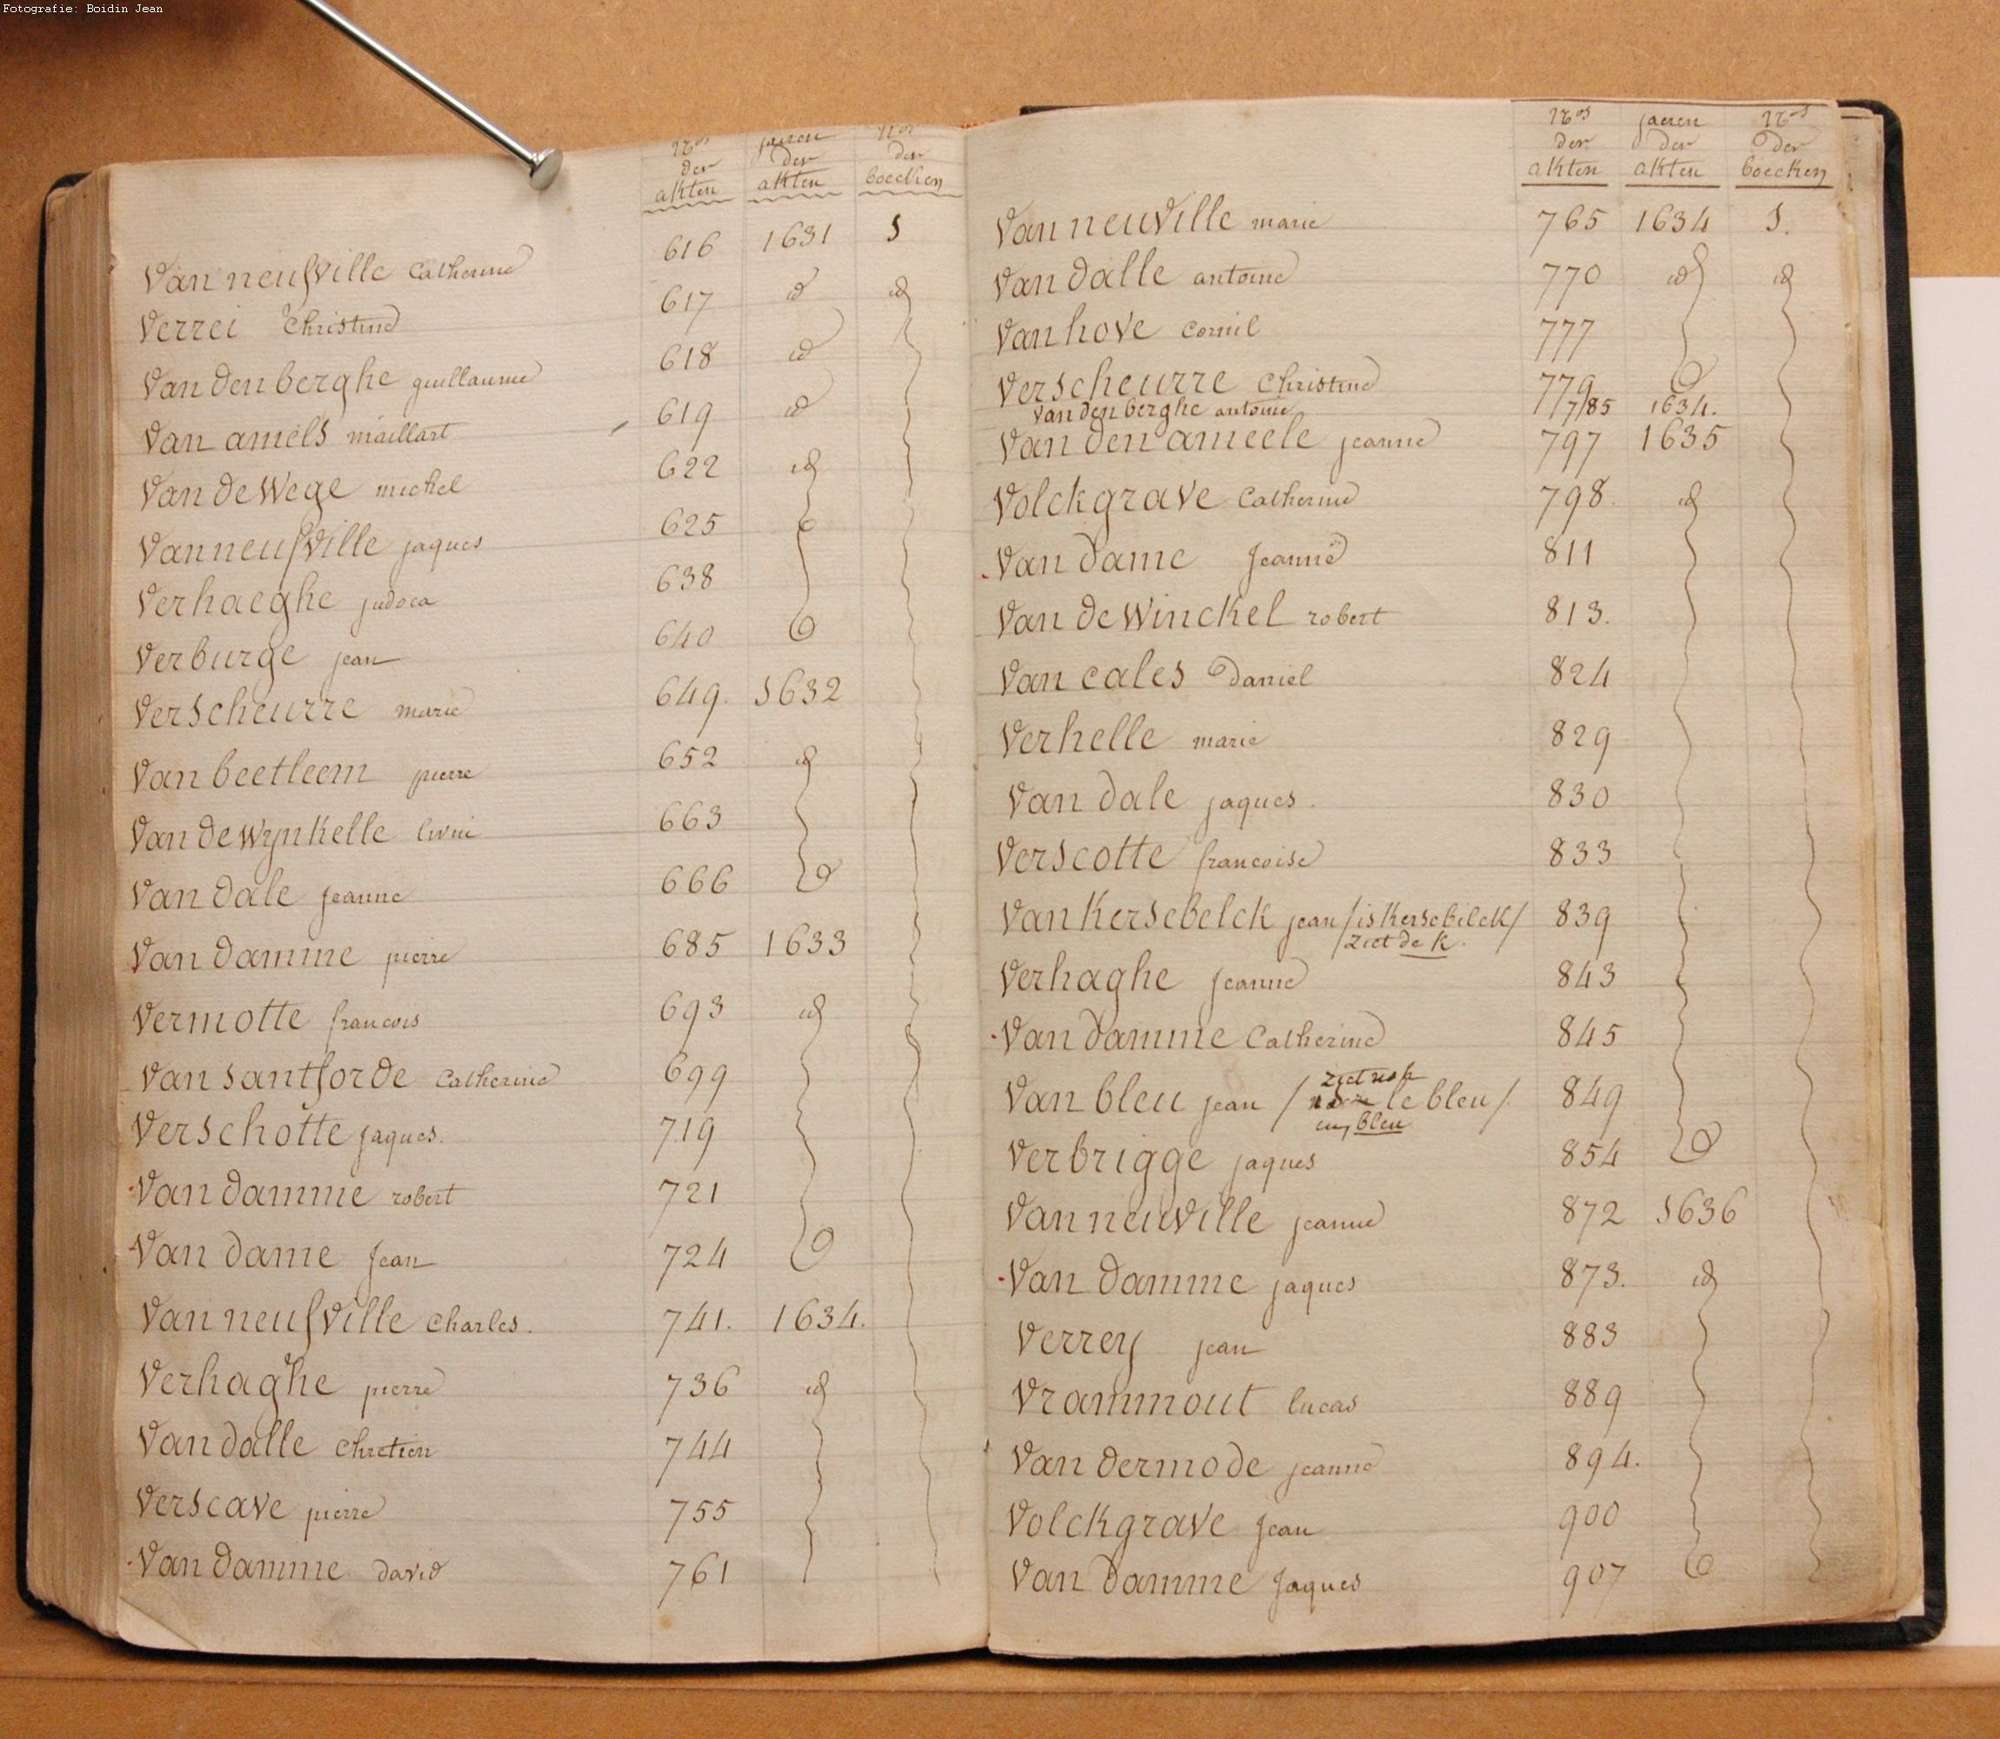 Fotografie: Boidin Jean
Nos jaeren Nos
der der der
akten akten boecken
Van neufville Catherine 616 1631 1
Verrei Christine 617 id id
Van den berghe guillaume 618 id
Van amels maillart 619 id
Van de Wege michel 622 id
Van neufville jaques 625
Verhaeghe judoca 638
Verburge jean 640
Verscheurre marie 649. 1632
Van beetleem pierre 652 id
Van de Wynkelle livin 663
Van dale jeanne 666
Van damme pierre 685 1633
Vermotte francois 693 id
Van santforde Catherine 699
Verschotte jaques. 719
Van damme robert 721
Van dame jean 724
Van neufville Charles. 741. 1634.
Verhaghe pierre 736 id
Van dalle Chretien 744
Verscave pierre 755
Van damme david 761
Nos jaeren Nos
der der der
akten akten boecken
Van neuville marie 765 1634 1.
Van dalle antoine 770 id id
Van hove Cornil 777
Verscheurre Christine 779
Van den berghe antoine 785 1634.
Van den ameele jeanne 797 1635
Volckgrave Catherine 798. id
Van dame jeanne 811
Van de Winckel robert 813.
Van cales daniel 824
Verhelle marie 829
Van dale jaques. 830
Verscotte francoise 833
Van Kersebelck jean /is Kersebilck/ 839
/ziet de K.
Verhaghe jeanne 843
Van damme Catherine 845
Van bleu jean / le bleu/. 849
bleu
Verbrigge jaques 854
Van neuville jeanne 872 1636
Van damme jaques 873. id
Verrey jean 883
Vrammout lucas 889
Van dermode jeanne 894.
Volckgrave jean 900
Van damme jaques 907